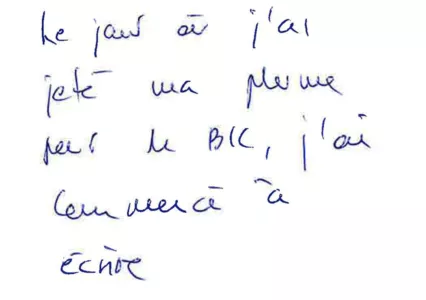 Le jour où j'ai
jeté ma plume
pour le BIC, j'ai
commencé à
écrire